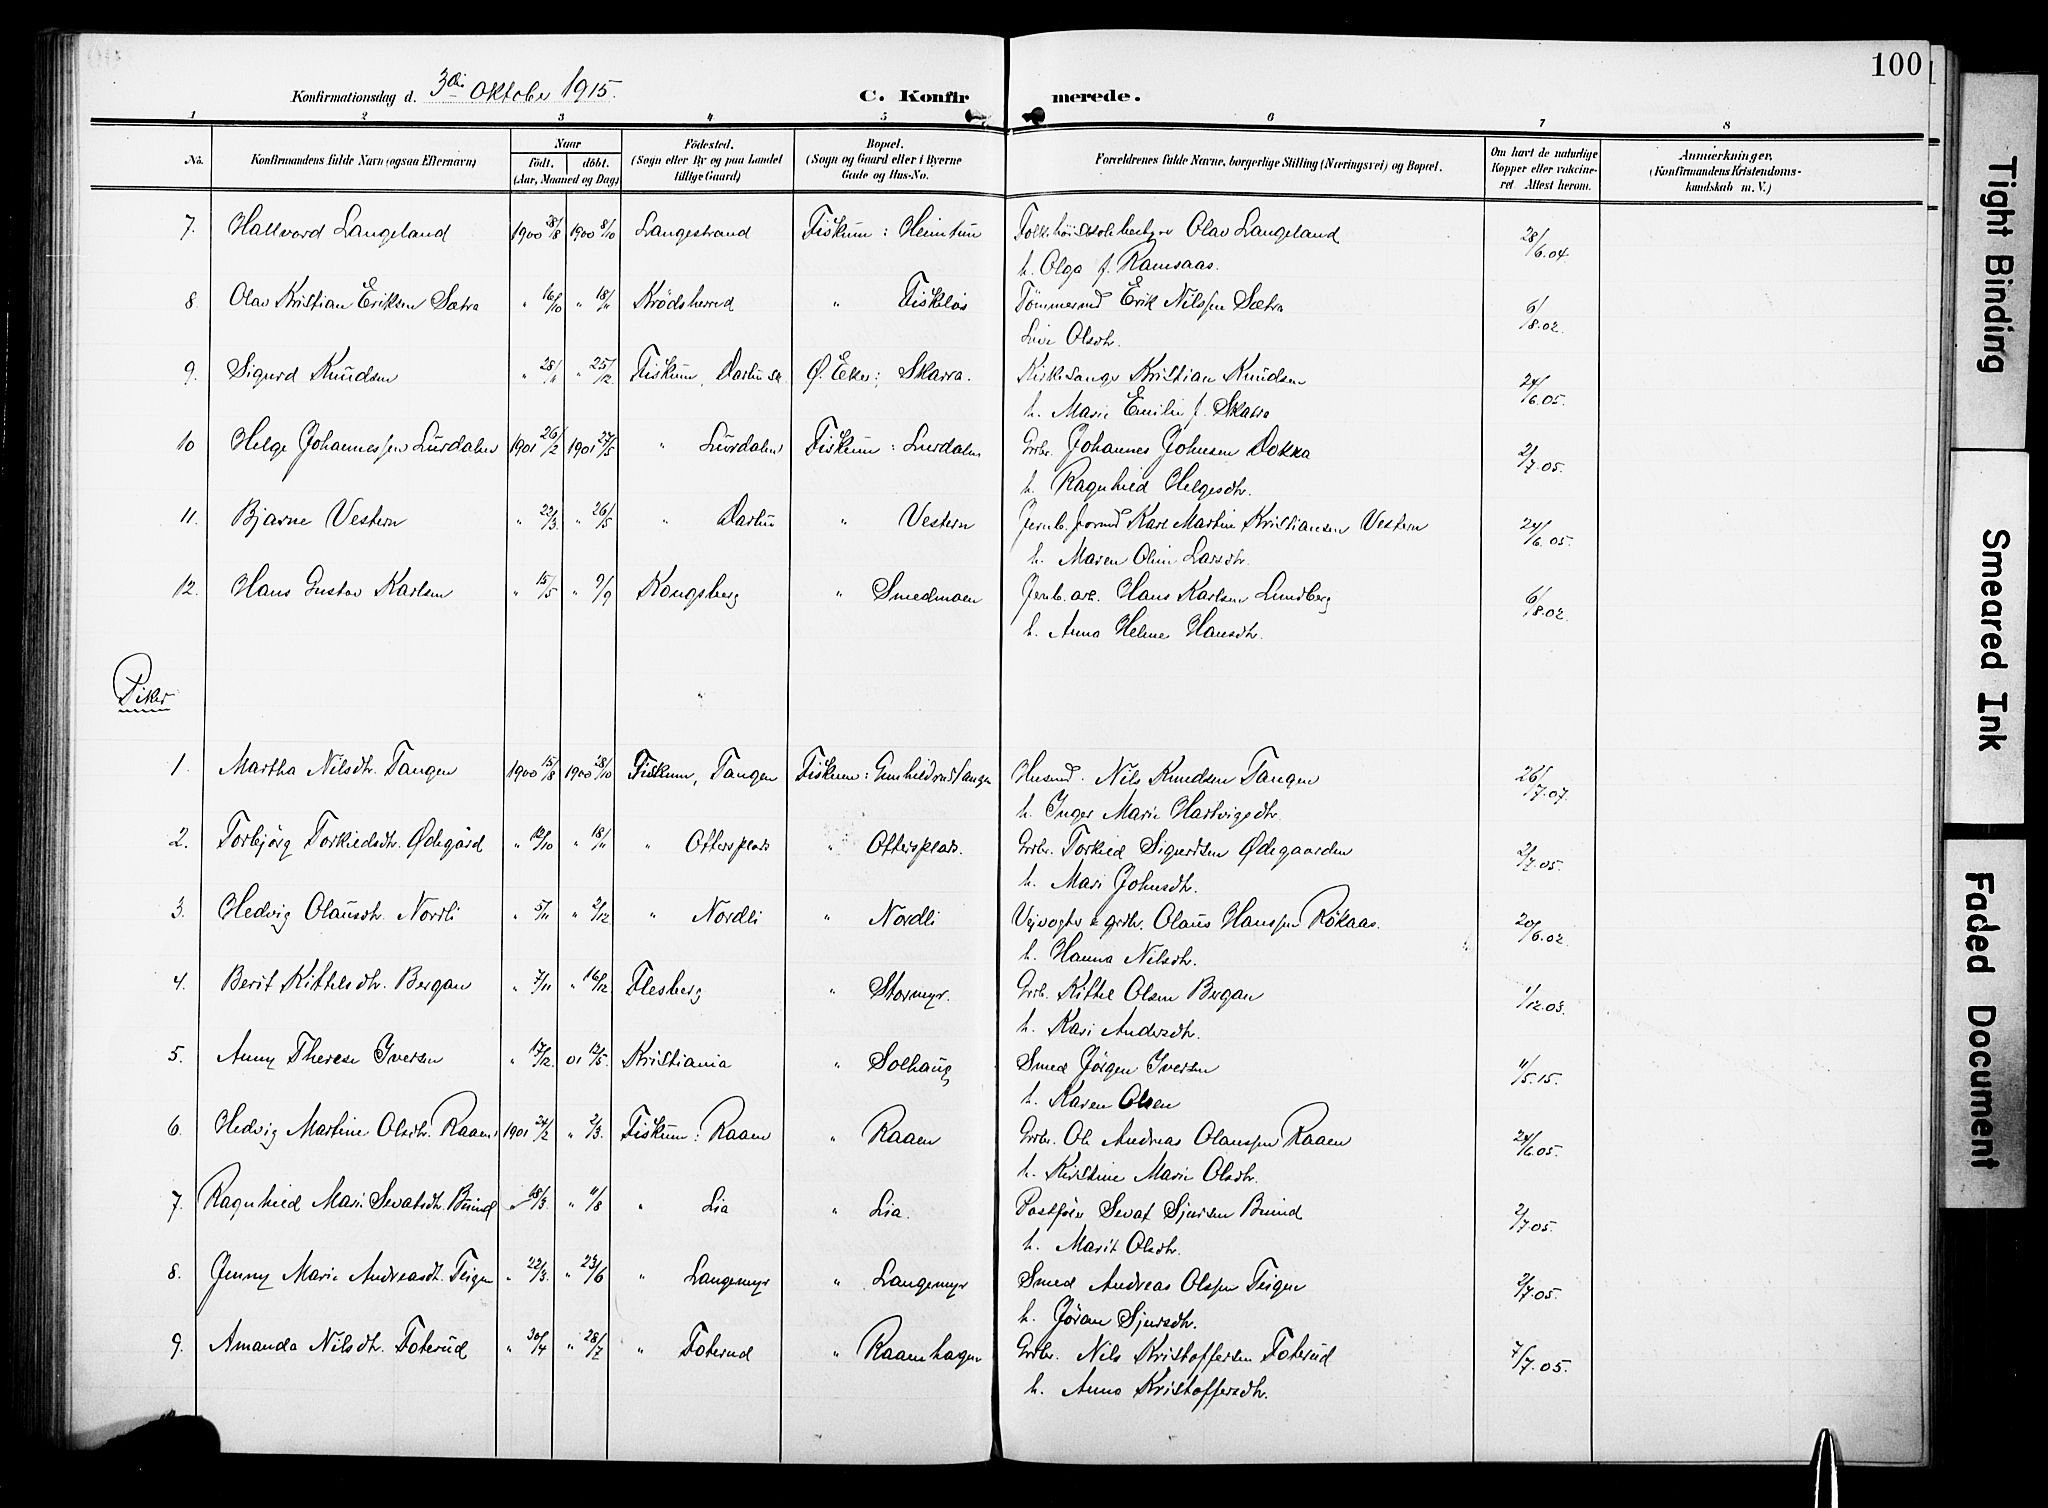 100
Konfirmationsdag d. 3die Oktober 1915.
C. Konfirmerede.
1 2 3 4 5 6 7 8
No.
Konfirmandens fulde Navn (ogsaa Efternavn)
Naar
født. døbt.
(Aar, Maaned og Dag)
Fødested.
(Sogn eller By og paa Landet
tillige Gaard)
Bopæl.
(Sogn og Gaard eller i Byerne
Gade og Hus-No.
Forældrenes fulde Navne, borgerlige Stilling (Næringsvei) og Bopæl.
Om havt de naturlige
Kopper eller vakcine-
ret Attest herom.
Anmærkninger.
(Konfirmandens Kristendoms-
kundskab m. V.)
7. Hallvard Langeland 1900 28/8 1900 8/10 Langestrand Fiskum: Heimtun Olav Langeland 28/6.04.
h. Olga f. Ramsaas.
8. Olav Kristian Eriksen Sætra " 16/10 " 18/11 Krødsherred " Fiskløs Tømmermd Erik Nilssen Sætra 6/8.02.
Live Olsdtr.
9. Sigurd Knudsen " 28/11 " 25/12 Fiskum, Ø. Eker: Skarra. Kirkesanger Kristian Knudsen 24/6.05.
h. Marie Emilie f. Skarra
10 Helge Johannessen Lurdalen 1901 26/2 1901 27/5 " Lurdalen Fiskum: Lurdalen Grbr. Johannes Johnsen Dokka 2/7.05.
h. Ragnhild Helgesdtr.
11. Bjarne Vestern " 22/3 " 26/5 " Darbu " Vestern Jernb. formd Karl Martin Kristiansen Vestern 24/6.05.
h. Maren Olin Larsdtr.
12. Hans Gustav Karlsen " 15/5 " 9/9 Kongsberg " Smedmoen Jernb. arb. Hans Karlsen Lundberg 6/8.02.
h. Anna Helene Hansdtr.
Piker
1. Martha Nilsdtr. Tangen 1900 15/8 1900 28/10 Fiskum, Tangen Fiskum: Gunhildrudtangen Husmd. Nils Knudsen Tangen 26/7.07.
h. Inger Marie Hartvigsdtr.
2. Torbjørg Torkildsdtr. Ødegård " 12/10 " 18/11 " Ottersplads " Ottersplads. Grbr. Torkild Sigurdsen Ødegaarden 2/7.05.
h. Mari Johnsdtr.
3. Hedvig Olausdtr. Nordli " 5/11 " 2/12 " Nordli " Nordli Veivogter & grdbr. Olaus Hanssen Røkaas. 20/6.02.
h. Hanna Nilsdtr.
4. Berit Kittelsdtr. Bergan " 7/11 " 16/12 Flesberg " Stormyr. Grb. Kittel Olsen Bergan 1/12.03.
h. Kari Andersdtr.
5. Anny Therese Iversen " 17/12. 01 12/5. Kristiania " Solhaug Smed Jørgen Iversen 11/5.15.
h. Karen Olsen
6. Hedvig Martine Olsdtr. Raaen 1901 24/2 " 2/3. Fiskum: Raaen " Raaen Grbr. Ole Andreas Olaussen Raaen 24/6.05.
h. Kirstine Marie Olsdtr.
7. Ragnhild Mari Sevatsdtr. Buind " 18/3. " 11/8 " Lia " Lia. Postfører Sevat Sjursen Buind 2/7.05.
h. Marit Olsdtr.
8. Jenny Marie Andreasdt. Teigen " 22/3. " 23/6 " Langemyr " Langemyr Smed Andreas Olssen Teigen 2/7.05.
h. Jøran Sjursdtr.
9. Amanda Nilsdtr. Foterud " 30/4 " 28/7 " Foterud " Raaenhagen Grbr. Nils Kristoffersen Foterud 7/7.05.
h. Anna Kristoffersdtr.
Tight Binding
Smeared Ink
Faded Document